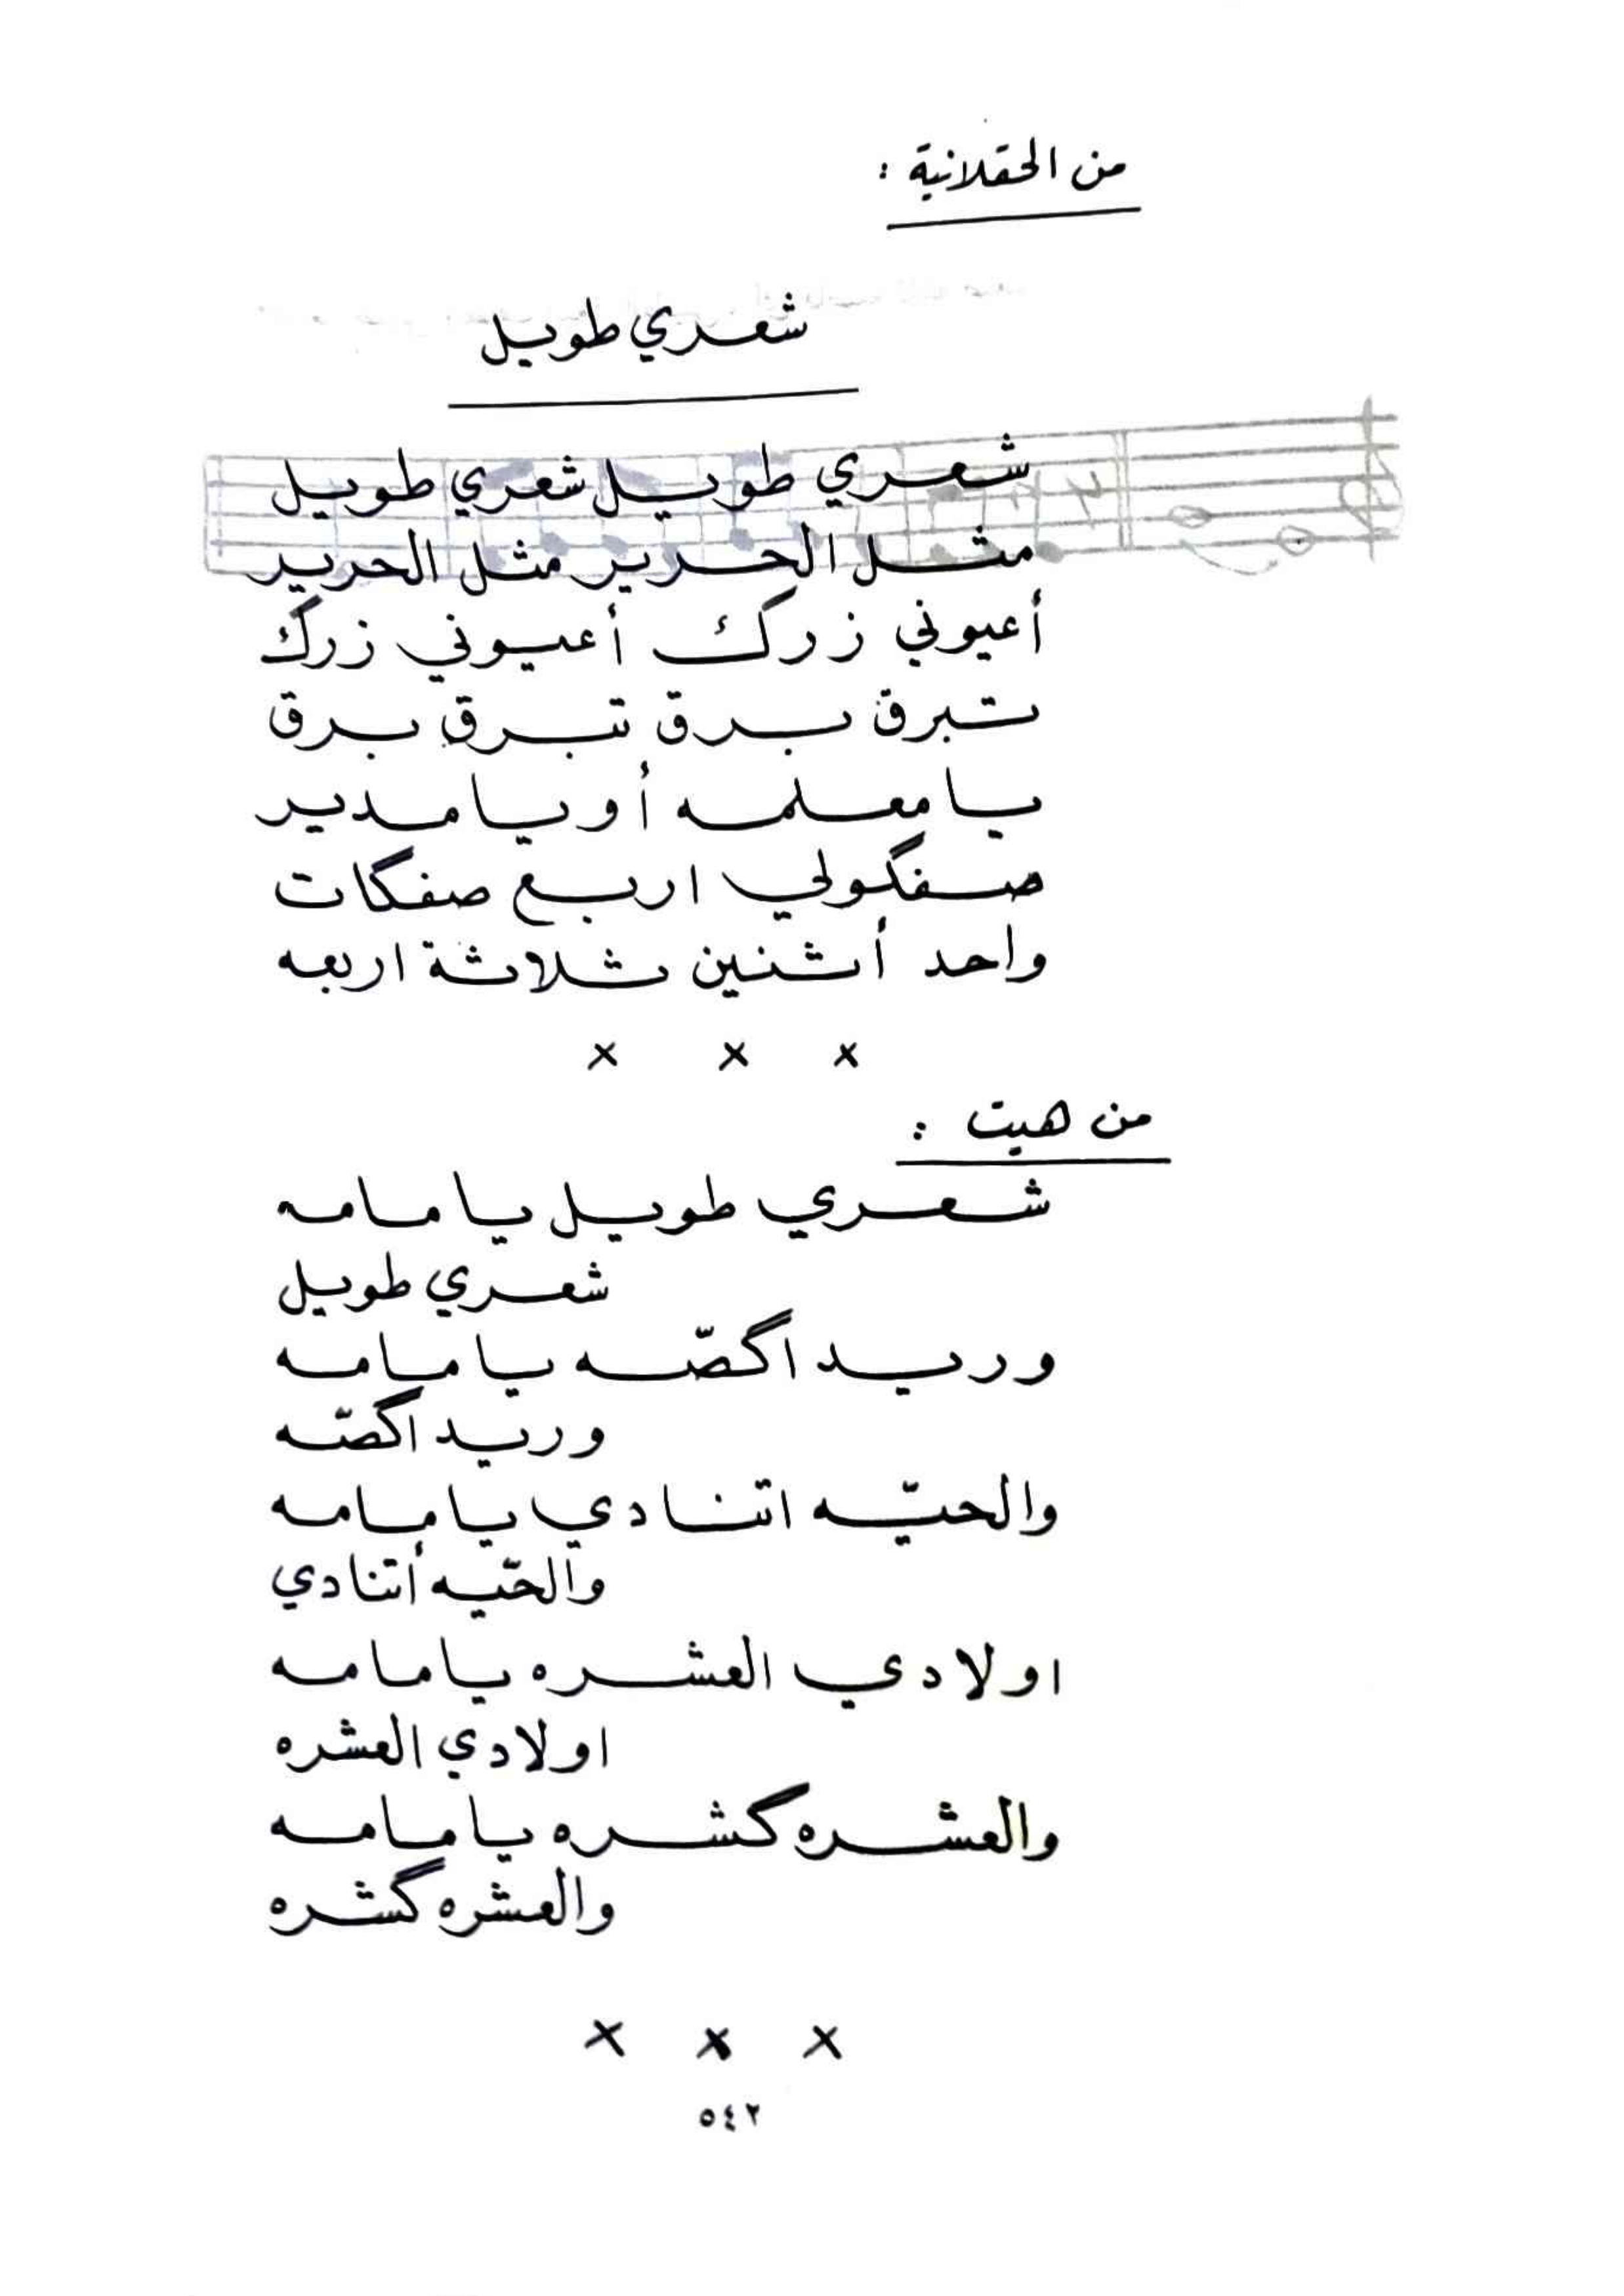 من الحقلانية :
شعري طويل
شعري طويل شعري طويل
مثل الحرير مثل الحرير
أعيوني زرگ أعيوني زرگ
تبرق برق تبرق برق
يا معلمه أو يا مدير
صفگولي اربع صفگات
واحد أثنين ثلاثة اربعه
× × ×
من هيت :
شعري طويل يا مامه
شعري طويل
وريد اگصّه يا مامه
وريد اگصّه
والحيّه اتنادي يا مامه
والحيّه أتنادي
اولادي العشره يا مامه
اولادي العشره
والعشره گشره يا مامه
والعشره گشره
× × ×
٥٤٢